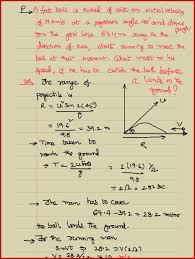 P. A foot ball is kicked of with an initial velocity
of 19.6 m/s at a projection angle 45° and
on the goal line 67.4 m away in the
direction of kick, start running to meet the
ball at that moment. What must be his
speed, if he has to catch the ball before
it lands to the ground?
Sol: The range of
projectile is
R = u² Sin 2(45)
g
= 19.6²
9.8 = 39.2 m
→ Time taken to
reach the ground
T = 2u Sinθ
g
= 2(19.6) 1/√2
9.8
= 2√2 = 2.82 s
→ The man has to cover
67.4 - 39.2 = 28.2 meter
to ball lands the ground.
→ For the running man
S = vT ⇒ 28.2 = V(2√2)